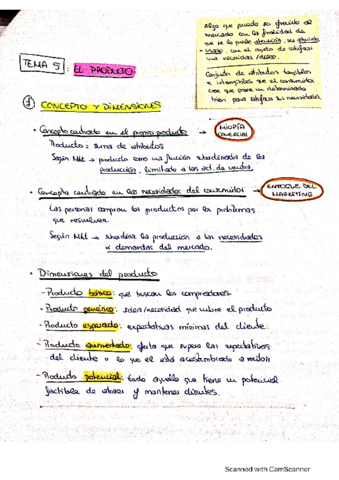 Algo que puede ser ofrecido al
mercado con la finalidad de
que se le preste atención, sea
con el objeto de satisfacer
una necesidad/deseo.
Conjunto de atributos tangibles
e intangibles que el consumidor
cree que posee un determinado
bien para satisfacer sus necesidades.
TEMA 5: EL PRODUCTO
① CONCEPTO Y DIMENSIONES
· Concepto centrado en el propio producto → MIOPÍA COMERCIAL
Producto = suma de atributos
Según Mkt → producto como una función subordinada de la
producción, limitada a las act. de ventas
· Concepto centrado en las necesidades del consumidor → ENFOQUE DEL MARKETING
Las personas compran los productos por los problemas
que resuelven.
Según Mkt → subordina la producción a las necesidades
y demandas del mercado.
· Dimensiones del producto
- Producto básico: que buscan los compradores.
- Producto genérico: idea/necesidad que cubre el producto
- Producto esperado: expectativas mínimas del cliente.
- Producto aumentado: oferta que supera las expectativas
del cliente o lo que él está acostumbrado a recibir
- Producto potencial: todo aquello que tiene un potencial
factible de atraer y mantener clientes.
Scanned with CamScanner